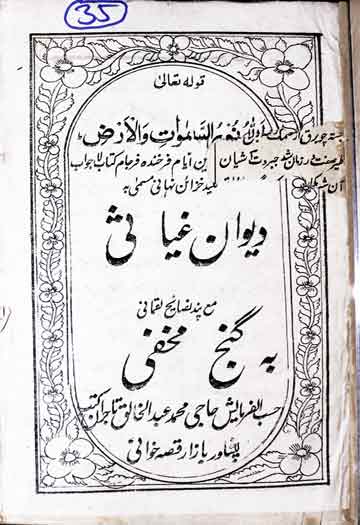 35
قوله تعالیٰ
الله نور السمٰوات والارض
این ایام فرخنده فرجام کتاب لاجواب
خزائن نهانی مسمی به
دیوان غیاثی
مع پند نصایح لقمانی
به گنج مخفی
حسب الفرمایش حاجی محمد عبدالخالق تاجران کتب
پشاور بازار قصه خوانی